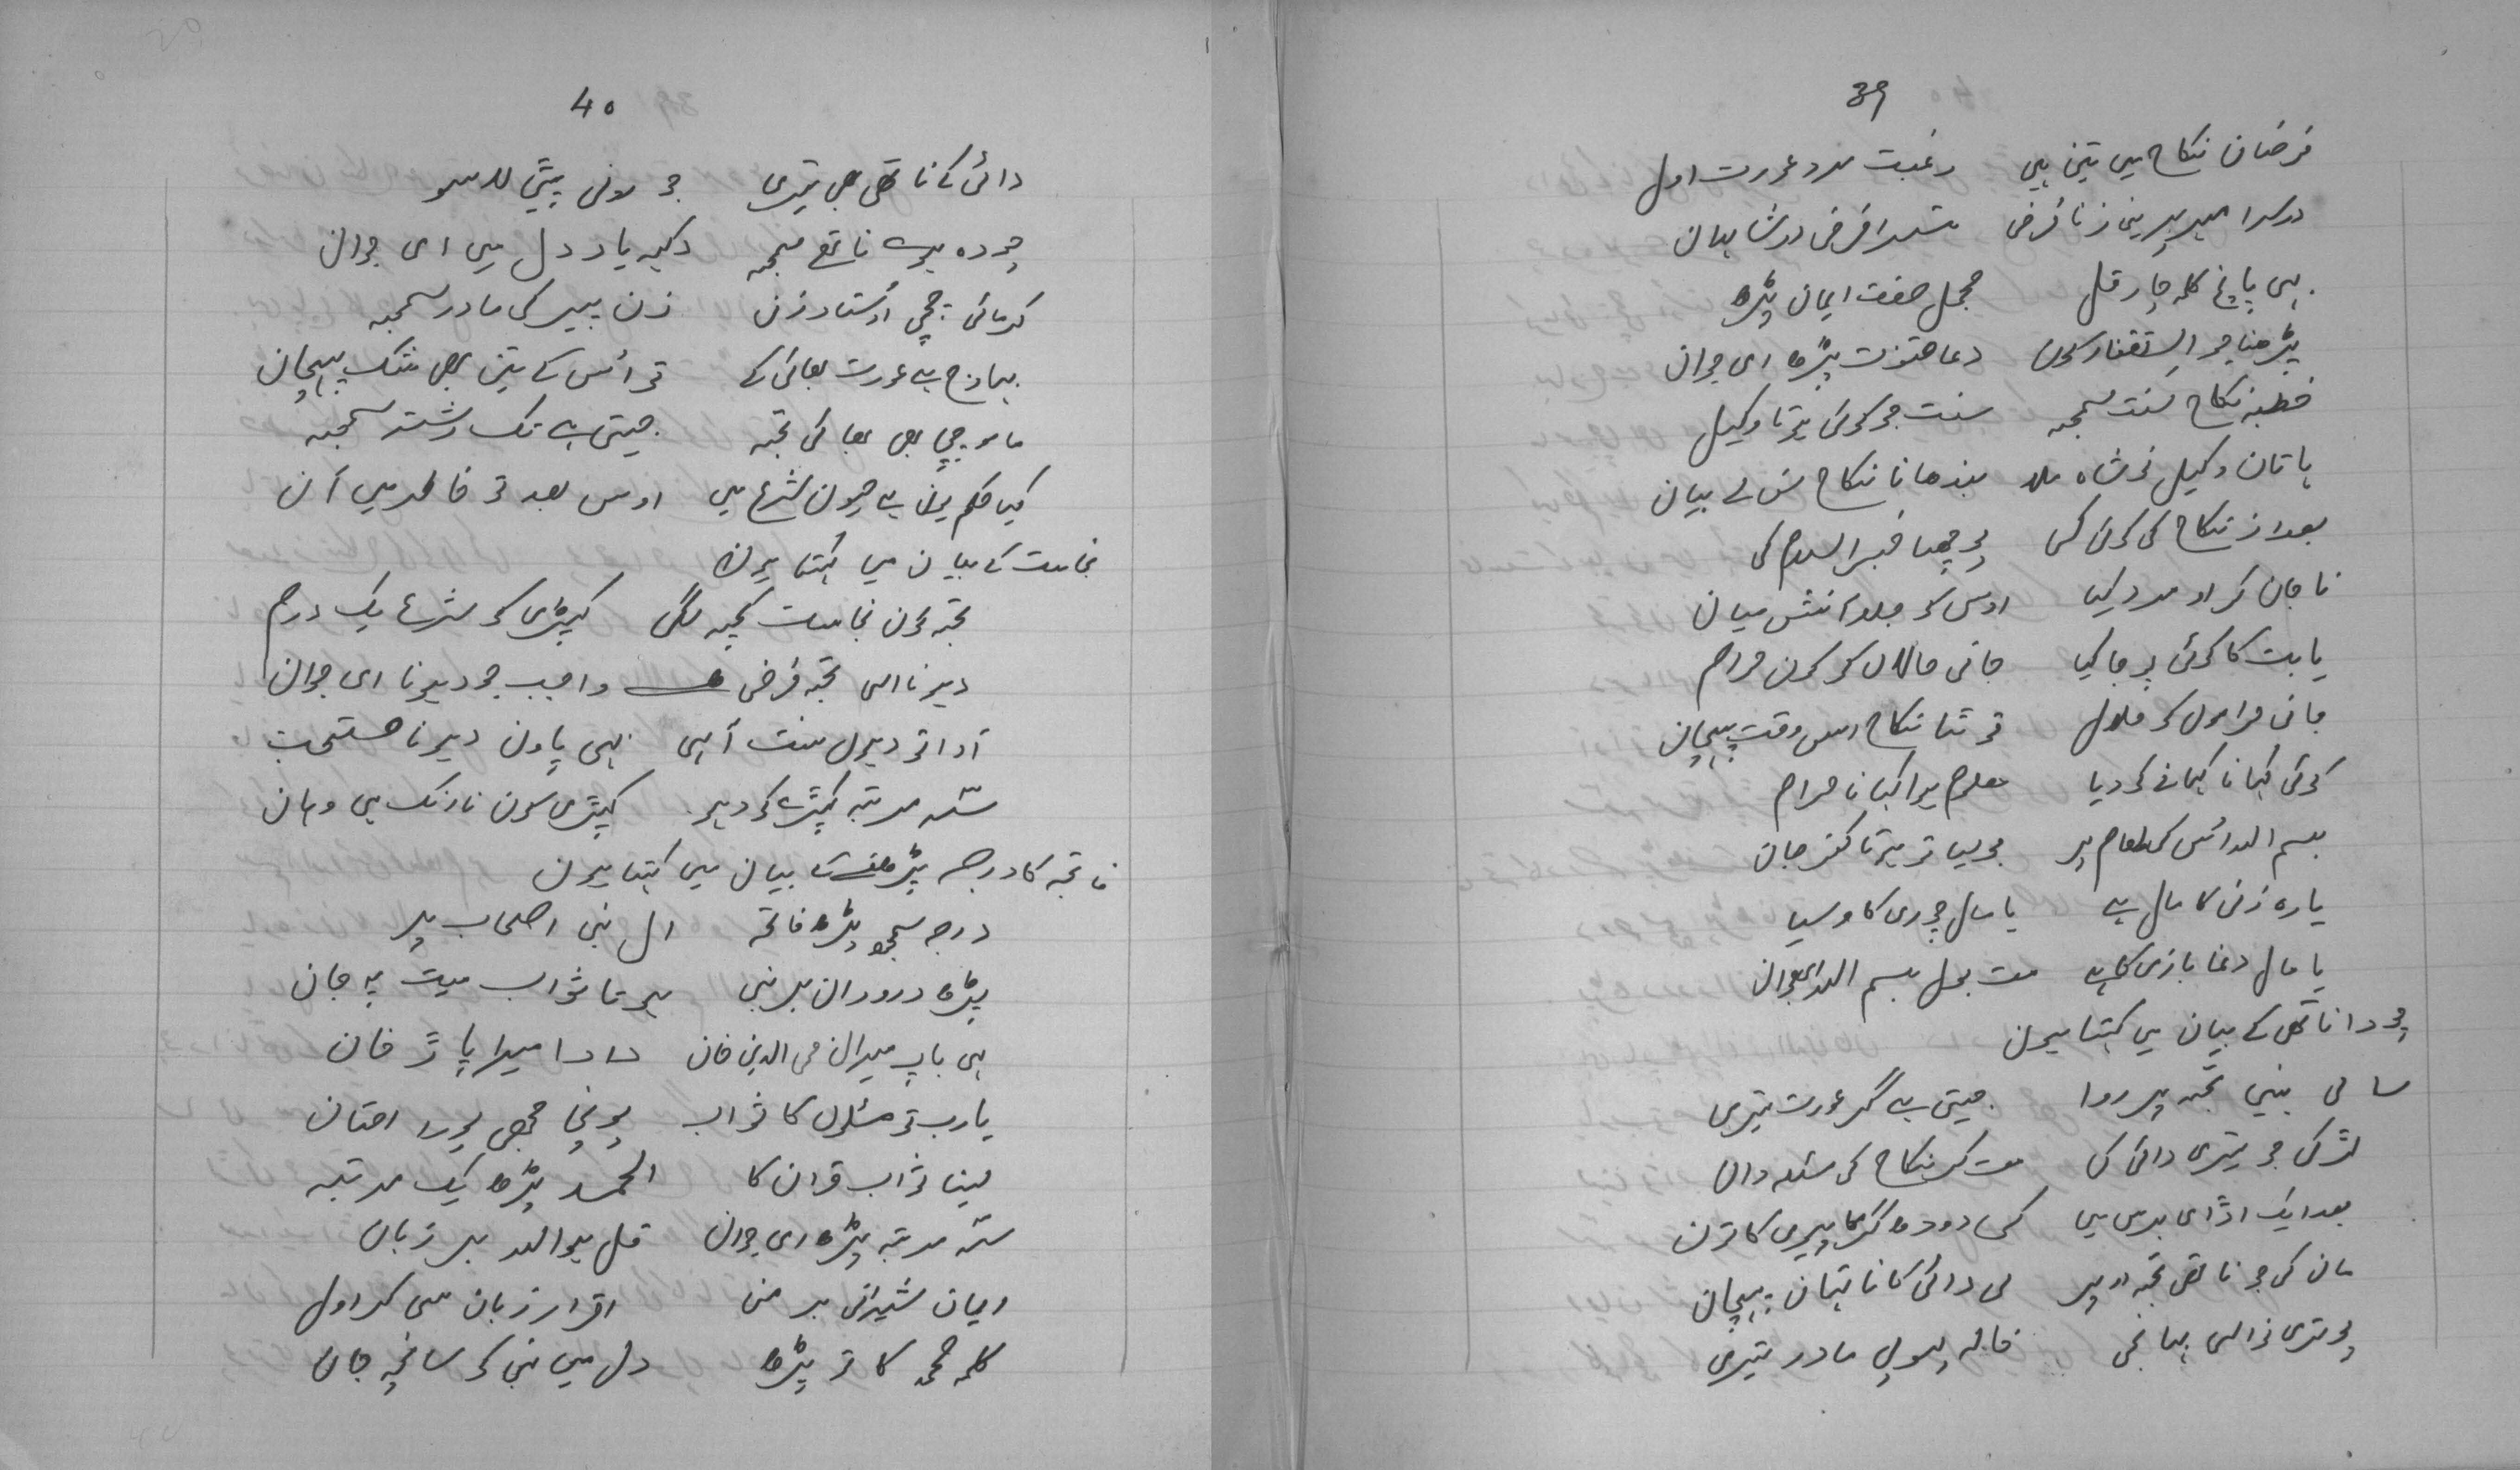 39
فرضان نکاح میں تین ہیں رغبت مرد عورت اول
دوسرا مہر دینی زنا فرض تیسرا فرض دو شاہدان
ہیں پانچ کلمہ چار قل مجمل صفت ایمان پڑہ
پڑھنا جو استغفار سوں دعا قنوت پڑہ ای جوان
خطبہ نکاح سنت سمجہ سنت جو کوئی ہوتا وکیل
ہاتان وکیل نوشاہ ملا بندھانا نکاح سن لے بیان
بعد از نکاح کی کوئی کس پوچھیا خبر السلام کی
نا جان کر او مرد کیا اوس کو جلد آتش میان
یا بت کا کوئی پوجا کیا جانی حلالاں کو کون حرام
جانی حرامون کو حلال توٹتا نکاح اوس وقت پہچان
کوئی کہانا کہانے کو دیا معلوم ہوا کہانا حرام
بسم اللہ اُس طعام پر بولیا تو ہوتا کفر جان
یا رہ زنی کا مال ہے یا مال چوری کا وسیا
یا مال دغا بازی کا ہے مت بول بسم اللہ ای جوان
چودا ناتھی کے بیان میں کہتا ہوں
سالی نہیں تجہ پر روا جیتی ہے گر عورت تیری
لڑکی جو تیری دائی کی مت کر نکاح کی مسئلہ دان
بعد ایک اڈائی برس میں کس دودہ گر پیوی کا تون
ماں کی جو ناتھی تجہ اوپر لی دائی کا ناتہاں پہچان
پوتری نواسی بھانجی خالہ پھوپی مادر تیری
40
دائی کا ناتھی بھی تیری جو لاوی بیٹی
چودہ ہوئے ناتھے سمجہ رکہ یاد دل میں ای جوان
کرمائی چچی اُستاد زن زن پیر کی مادر سمجہ
بہاوج ہے عورت بھائی کے تو اُس کے تین بھی پہچان
ماموچی بھی بھائی تجہ جیتی ہے تک رشتہ سمجہ
کیا حکم یوں ہے جیون شرع میں اوس بعد تو خاطر میں آن
نجاست کے بیان میں کہتا ہوں
تجہ کون نجاست کچہ لگی کپڑی کو شرعا یک درم
دیونا اسی تجہ فرض واجب جو دیونا ای جوان
آدا تو دیول سنت آہی نہیں پاون دیونا مستحب
ستہ مرتبہ کپڑے کو دہو کپڑی سون نا رنگ ہی وہان
فاتحہ کا درجہ پڑھنے کے بیان میں کہتا ہوں
درجہ سمجہو پڑہ فاتحہ ال نبی اصحاب پر
پڑہ درود ان بر نبی ہوتا ثواب میت پہ جان
ہی باپ میراں محی الدین خان دادا میرا پاڑ خان
یارب تو مسئلوں کا ثواب پونچا مجھی پورا
لینا ثواب قران کا الحمد پڑہ یک مرتبہ
ستہ مرتبہ پڑہ ای جوان قل ہو اللہ بر زبان
ایمان شیرانی بر منی اقرار زبان سی کر اول
کلمہ محمد کا تو پڑہ دل میں نبی کو سانچہ جان